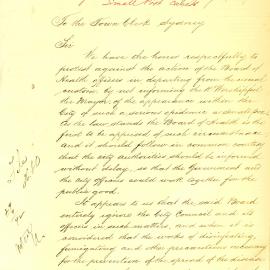 Small Pox
To the Town Clerk Sydney
Sir
We have the honor respectfully to
protest against the action of the Board of
Health officers in departing from the usual
custom by not informing the
the Mayor of the appearance within the
City of such a serious epidemic
the law stands the Board of Health is the
first to be apprised of such circumstances
and it should follow in common courtesy
that the city authorities should be informed
without delay, so that the Government and
the City officers could work together for the
public good.
It appears to us that the said Board
entirely ignore the City Council and its
officers in such matters, and when it is
considered that the works of disinfecting,
fumigating and other precautions necessary
for the prevention of the spread of the disease